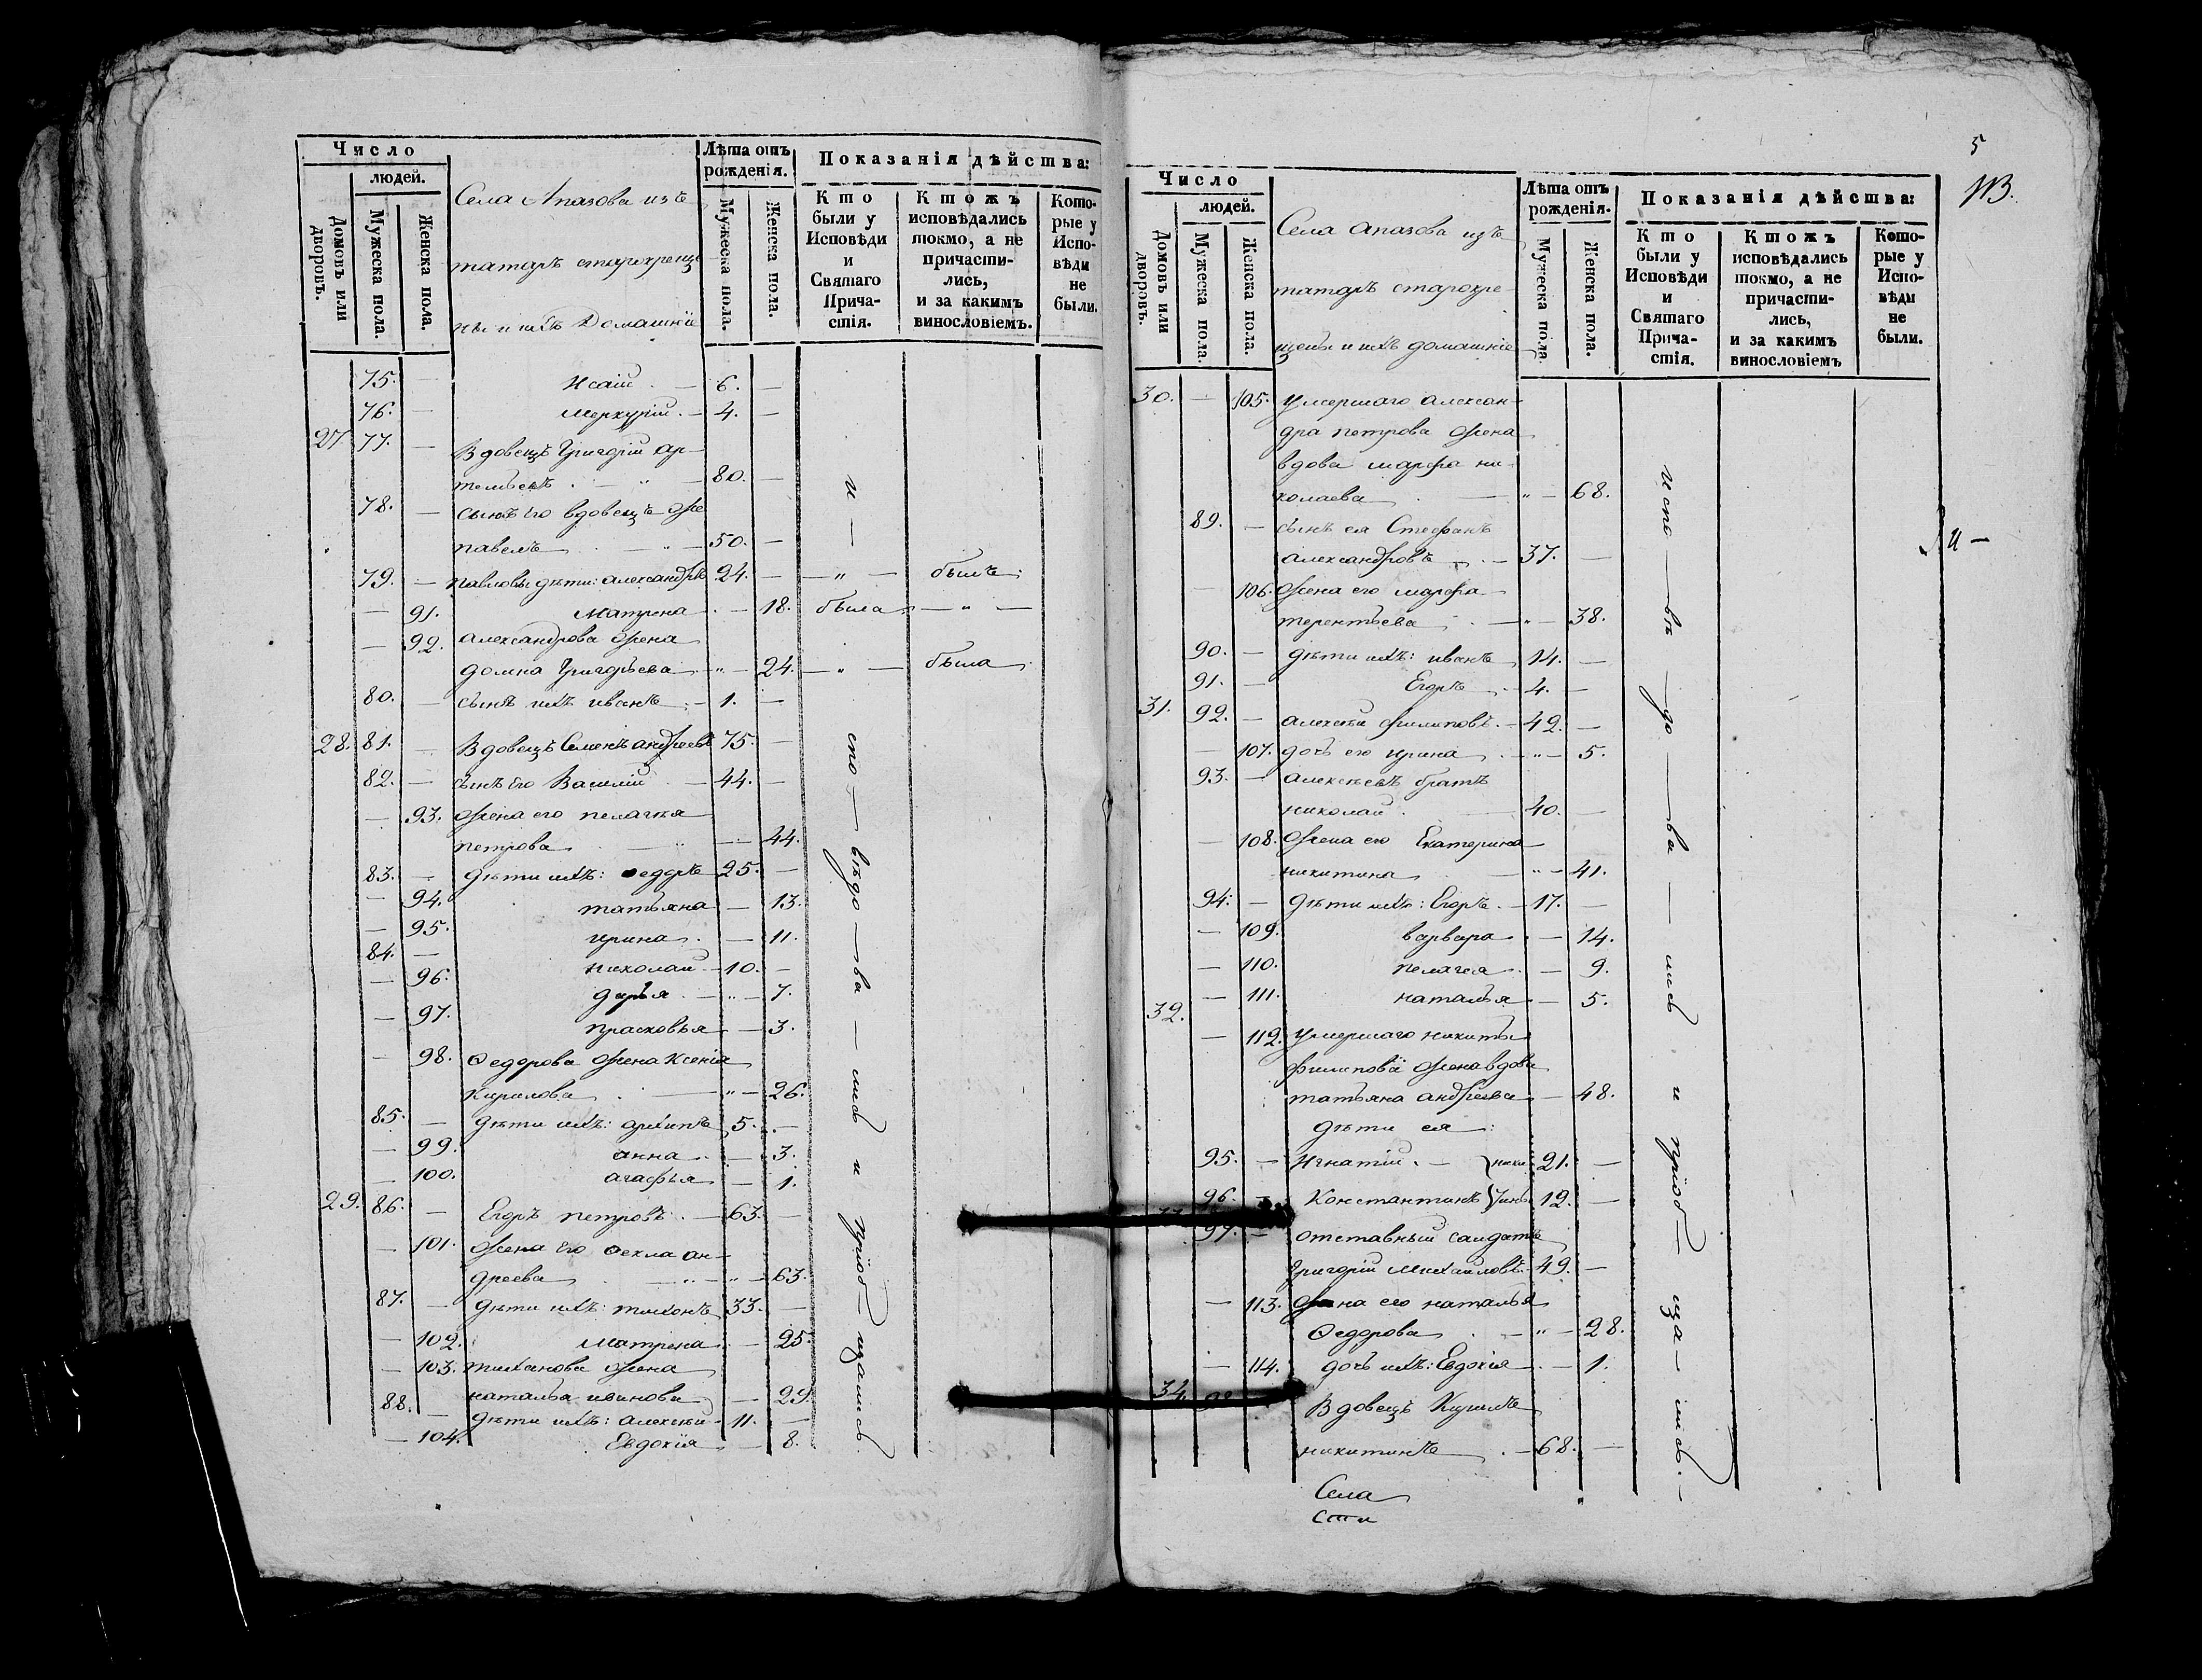 Число
людей.
Домовъ или дворовъ.
Мужеска пола.
Женска пола.
Села Апазова изъ
татаръ старокреще
ны и ихъ Домашніе
Лѣта отъ рожденія.
Мужеска пола.
Женска пола.
Показанія дѣйства:
Кто были у Исповѣди и Святаго Прича- стія.
Ктожъ исповѣдались токмо, а не причасти- лись, и за какимъ винословіемъ.
Кото- рые у Испо- вѣди не были.
75. — Исаій — 6. —
76. — Меркурій — 4. —
27 77. — Вдовецъ Григорій ар-
темьевъ — 80. —
78. — сынъ его вдовецъ же
павелъ — 50. —
79. — павловы дѣти: александръ 24. — — " — былъ
— 91. Матрена — 18. была — " —
— 92. александрова жена
домна Григорьева " — 24. — " — была
80. — сынъ ихъ иванъ — 1. —
28. 81. — Вдовецъ Семенъ андреевъ 75. —
82. — сынъ его Василій — 44. —
— 93. жена его пелагѣя
петрова — 44.
83. — дѣти ихъ: Ѳедоръ 25. —
— 94. татьяна — 13.
— 95. ирина — 11.
84. — николай — 10. —
— 96. дарья — " — 7.
— 97. прасковья — 3.
— 98. Ѳедорова жена Ксенія
Кирилова — " — 26.
85. — дѣти ихъ: архипъ 5. —
— 99. анна — 3.
— 100. агафья — 1.
29. 86. — Егоръ петровъ — 63. —
— 101. жена его Ѳекла ан-
дреева — " — 63.
87. — дѣти ихъ: тихонъ 33. —
— 102. Матрена — 25.
— 103. тиханова жена
наталья иванова — 29.
88. — дѣти ихъ: алексѣй 11. —
— 104. Евдокія — 8.
и — спо — вѣдо — ва — лись и пріоб — щались.
5
113.
Число
людей.
Домовъ или дворовъ.
Мужеска пола.
Женска пола.
Села Апазова изъ
татаръ старокре
щены и ихъ домашніе
Лѣта отъ рожденія.
Мужеска пола.
Женска пола.
Показанія дѣйства:
Кто были у Исповѣди и Святаго Прича- стія.
Ктожъ исповѣдались токмо, а не причасти- лись, и за какимъ винословіемъ
Кото- рые у Испо- вѣди не были.
30. — 105. умершаго алексан-
дра петрова жена
вдова марфа ни-
колаева — " — 68.
89. — сынъ ея Стефанъ
александровъ — 37. —
— 106. жена его марфа
терентьева — " — 38.
90. — дѣти ихъ: иванъ 14. —
91. — Егоръ — 4. —
31. 92. — алексѣй филиповъ — 42. —
— 107. дочь его ирина — " — 5.
93. — алексѣевъ братъ
николай — 40. —
— 108. жена его Екатерина
никитина — " — 41.
94. — дѣти ихъ: Егоръ — 17. —
— 109. варвара — 14.
— 110. пелагея — 9.
— 111. наталья — 5.
32.
— 112. умершаго никиты
филипова жена вдова
татьяна андреева — 48.
дѣти ея:
95. — Игнатій — } ники 21. —
96. — Константинъ } тины 19. —
97. — отставный салдатъ
Григорій Михайловъ — 49. —
— 113. жена его наталья
Ѳедорова — " — 28.
— 114. дочь ихъ: Евдокія — 1.
34. 98. Вдовецъ Кирилъ
никитинъ — 68. —
испо — вѣ — до — ва — лись и пріоб — ща — лись. —
Села